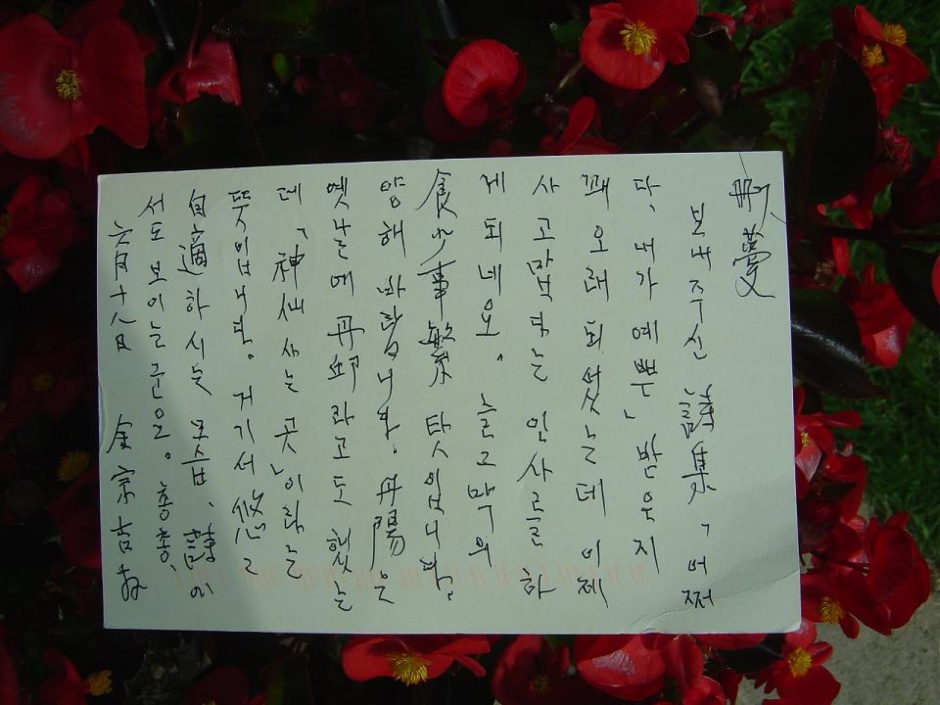 보내주신 詩集, 「어쩌
다, 내가 예뻐」 받은 지
꽤 오래 되었는데 이제
사 고맙다는 인사를 하
게 되네요. 늘그막의
食少事繁 탓입니다.
양해 바랍니다. 丹陽은
옛날에 丹邱라고도 했는
데, 「神仙 사는 곳」이라는
뜻입니다. 거기서 悠々
自適하시는 모습, 詩에
서도 보이는군요. 총총.
六月十八日 金宗吉